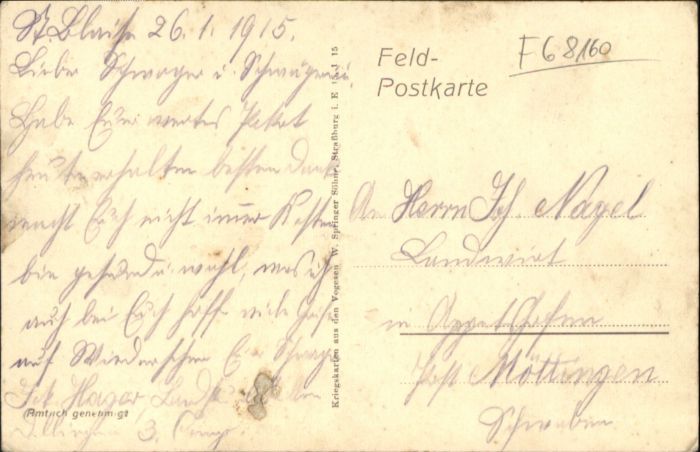 St. Blaise 26.1.1915.
Lieber Schwager u. Schwägerin
Habe Euer wertes Paket
heute erhalten besten Dank
macht Euch nicht immer Kosten
bin gesund u. wohl, was ich
auf bei Euch hoffe viele Grüße
auf Wiedersehen Euer Schwager
Hager
Dillingen 3. Comp.
(Amtlich genehmigt
Kriegskarten aus den Vogesen W. Springer Söhne, Straßburg i. E. 15
Feld-
Postkarte
F68/160
An Herrn Joh. Nagel
Landwirt
in Appetshofen
Post Möttingen
Schwaben